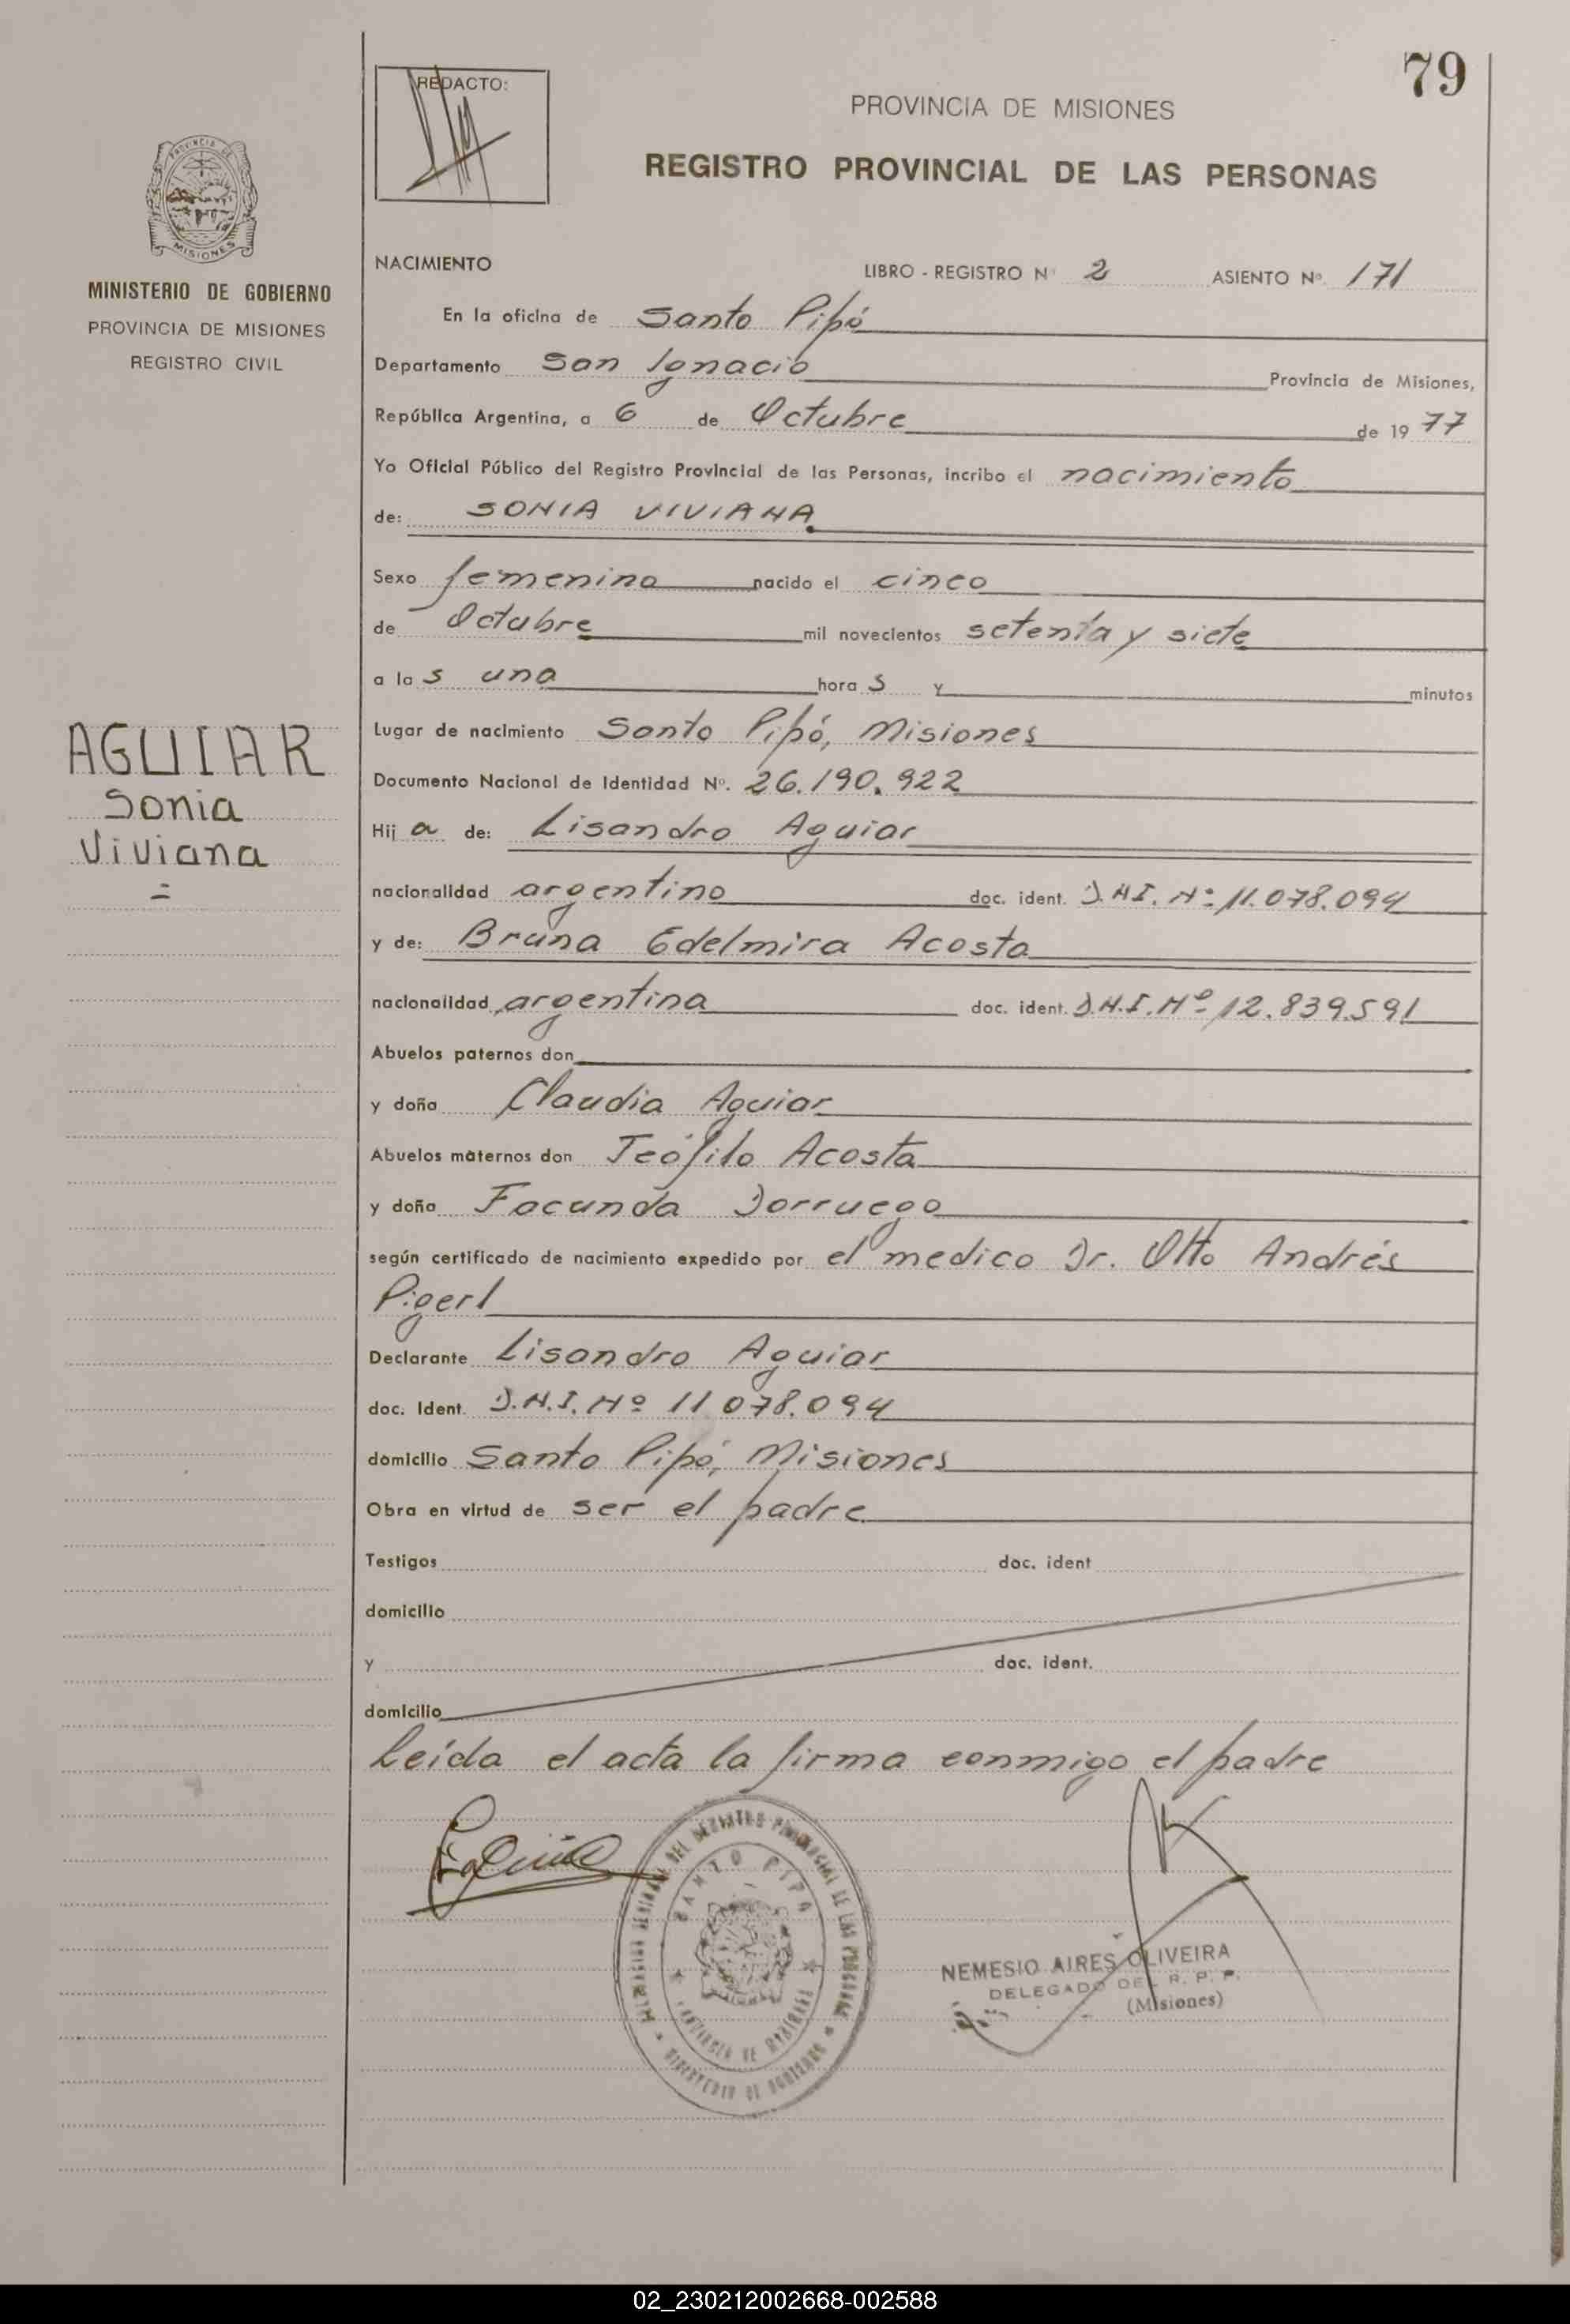 79
REDACTO:
PROVINCIA DE MISIONES
REGISTRO PROVINCIAL DE LAS PERSONAS
PROVINCIA DE
MISIONES
MINISTERIO DE GOBIERNO
PROVINCIA DE MISIONES
REGISTRO CIVIL
NACIMIENTO LIBRO - REGISTRO Nº 2 ASIENTO Nº. 171
En la oficina de Santo Pipó
Departamento San Ignacio Provincia de Misiones,
República Argentina, a 6 de Octubre de 1977
Yo Oficial Público del Registro Provincial de las Personas, incribo el nacimiento
de: SONIA VIVIANA
Sexo femenino nacido el cinco
de Octubre mil novecientos setenta y siete
a las una horas y minutos
Lugar de nacimiento Santo Pipó, Misiones
AGUIAR
Sonia
Viviana
Documento Nacional de Identidad Nº. 26.190.922
Hija de: Lisandro Aguiar
nacionalidad argentino doc. ident. D.N.I. Nº 11.078.094
y de: Bruna Edelmira Acosta
nacionalidad argentina doc. ident. D.N.I. Nº 12.839.591
Abuelos paternos don
y doña Claudia Aguiar
Abuelos maternos don Teófilo Acosta
y doña Facunda Dorruego
según certificado de nacimiento expedido por el medico Dr. Otto Andrés
Pigerl
Declarante Lisandro Aguiar
doc. Ident. D.N.I. Nº 11 078.094
domicilio Santo Pipó, Misiones
Obra en virtud de ser el padre
Testigos doc. ident
domicilio
y doc. ident.
domicilio
Leída el acta la firma conmigo el padre
SANTO PIPO
PROVINCIA DE MISIONES
MINISTERIO DE GOBIERNO
NEMESIO AIRES OLIVEIRA
DELEGADO DEL R. P. P.
(Misiones)
02_230212002668-002588